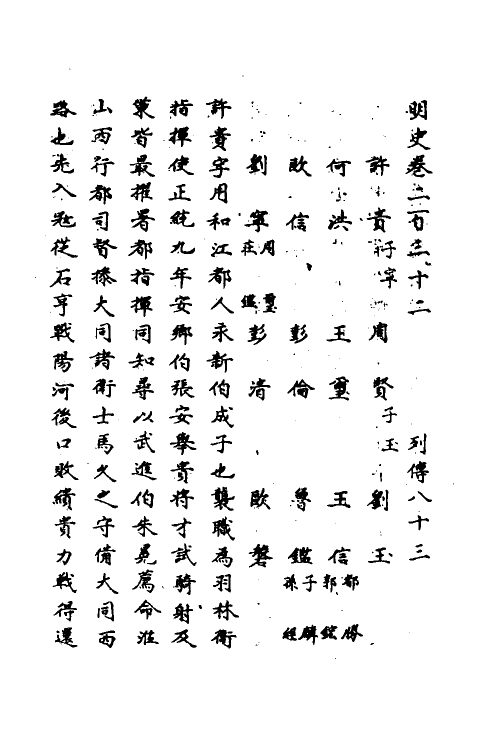 明史卷二百三十二　列傳八十三
許貴子寧　周賢子玉　劉玉
何洪　王璽　王信都勝 郭鋐
歐信　彭倫　魯鑑子麟 孫經
劉寧周璽 莊鑑　彭清　歐磐
許貴字用和江都人永新伯成子也襲職為羽林衛
指揮使正統九年安鄉伯張安舉貴將才試騎射及
策皆最擢署都指揮同知尋以武進伯朱冕薦命涖
山西行都司督操大同諸衛士馬久之守備大同西
路也先入寇從石亨戰陽河後口敗績貴力戰得還